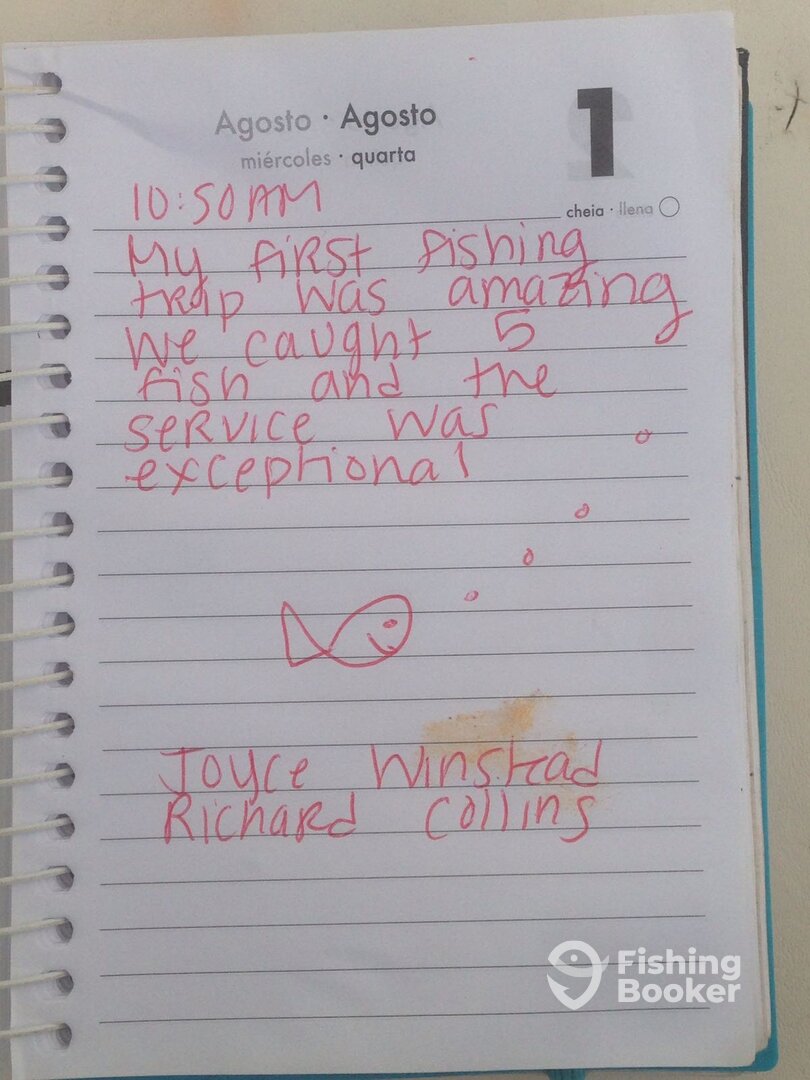 Agosto · Agosto
1
miércoles · quarta
10:50AM
cheia · llena
My first fishing
trip was amazing
We caught 5
fish and the
service was
exceptional
Joyce Winstead
Richard Collins
Fishing
Booker